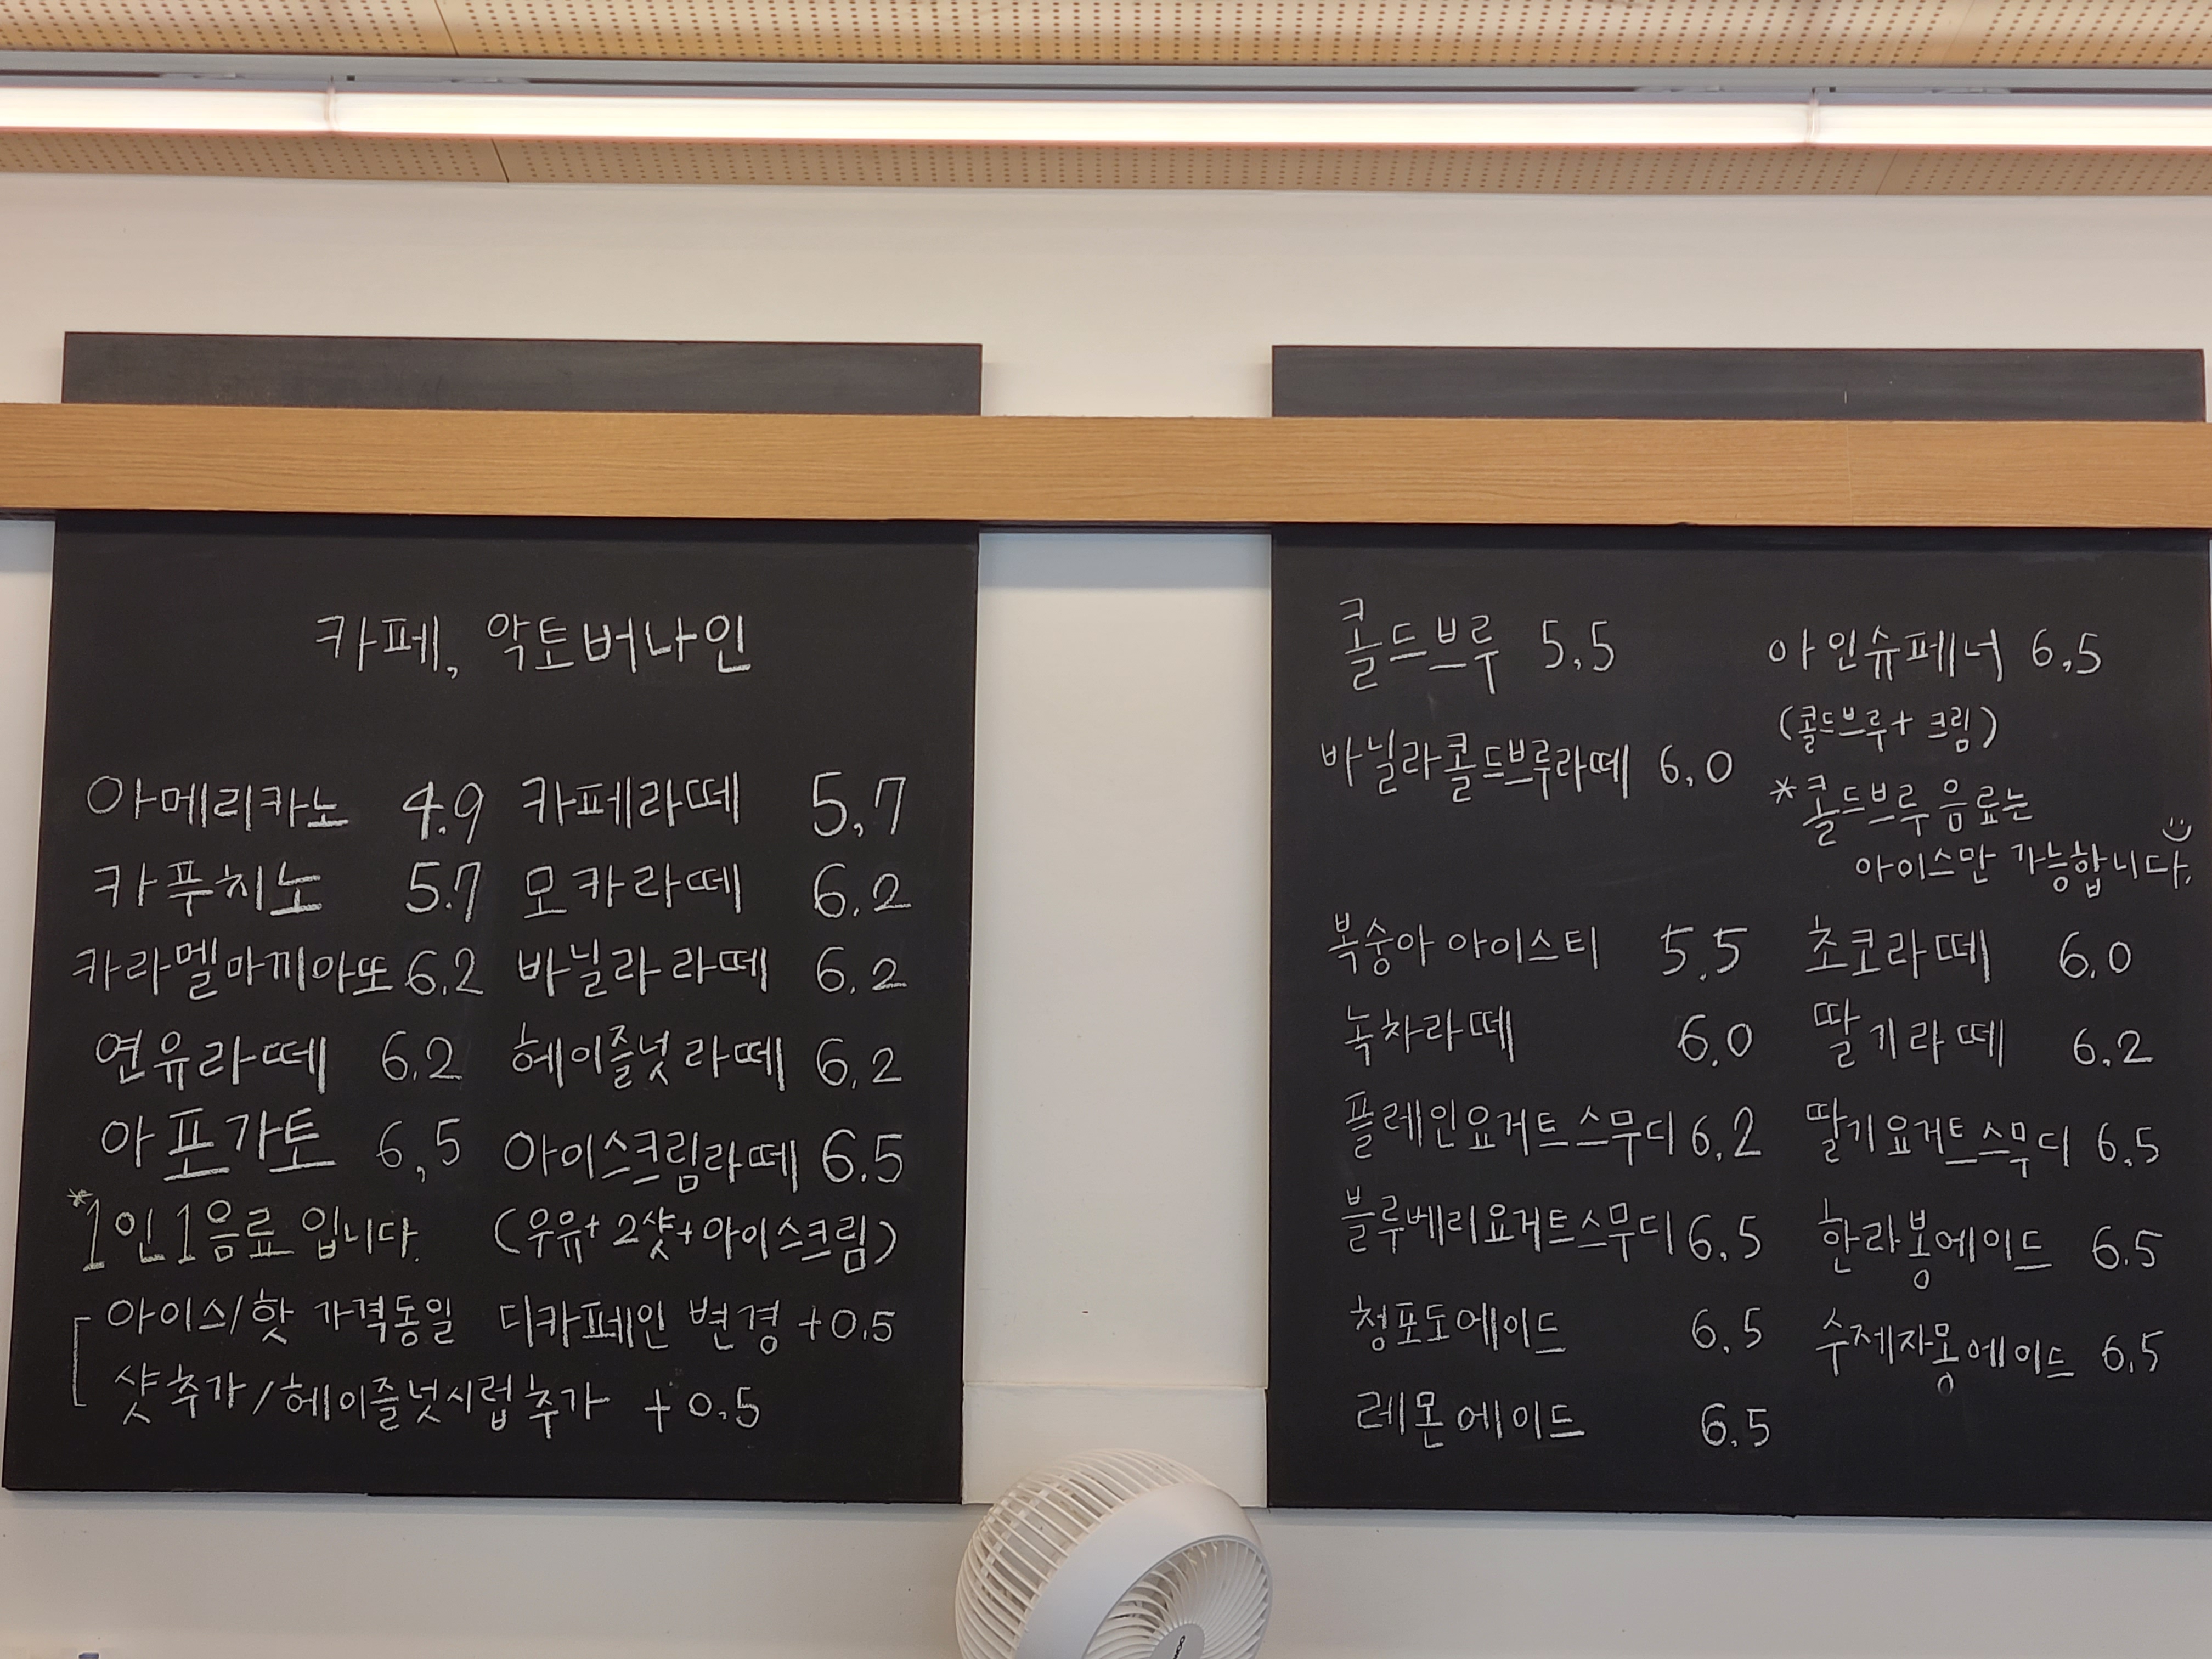 카페, 악토버나인
아메리카노 4.9 카페라떼 5.7
카푸치노 5.7 모카라떼 6.2
카라멜마끼아또 6.2 바닐라 라떼 6.2
연유라떼 6.2 헤이즐넛 라떼 6.2
아포가토 6.5 아이스크림라떼 6.5
*1인 1음료 입니다. (우유+2샷+아이스크림)
아이스/핫 가격동일 디카페인 변경 +0.5
샷추가/헤이즐넛시럽추가 +0.5
콜드브루 5.5 아인슈페너 6.5
(콜드브루+크림)
바닐라콜드브루라떼 6.0
*콜드브루 음료는
아이스만 가능합니다.
복숭아 아이스티 5.5 초코라떼 6.0
녹차라떼 6.0 딸기라떼 6.2
플레인요거트스무디 6.2 딸기요거트스무디 6.5
블루베리요거트스무디 6.5 한라봉에이드 6.5
청포도에이드 6.5 수제자몽에이드 6.5
레몬에이드 6.5